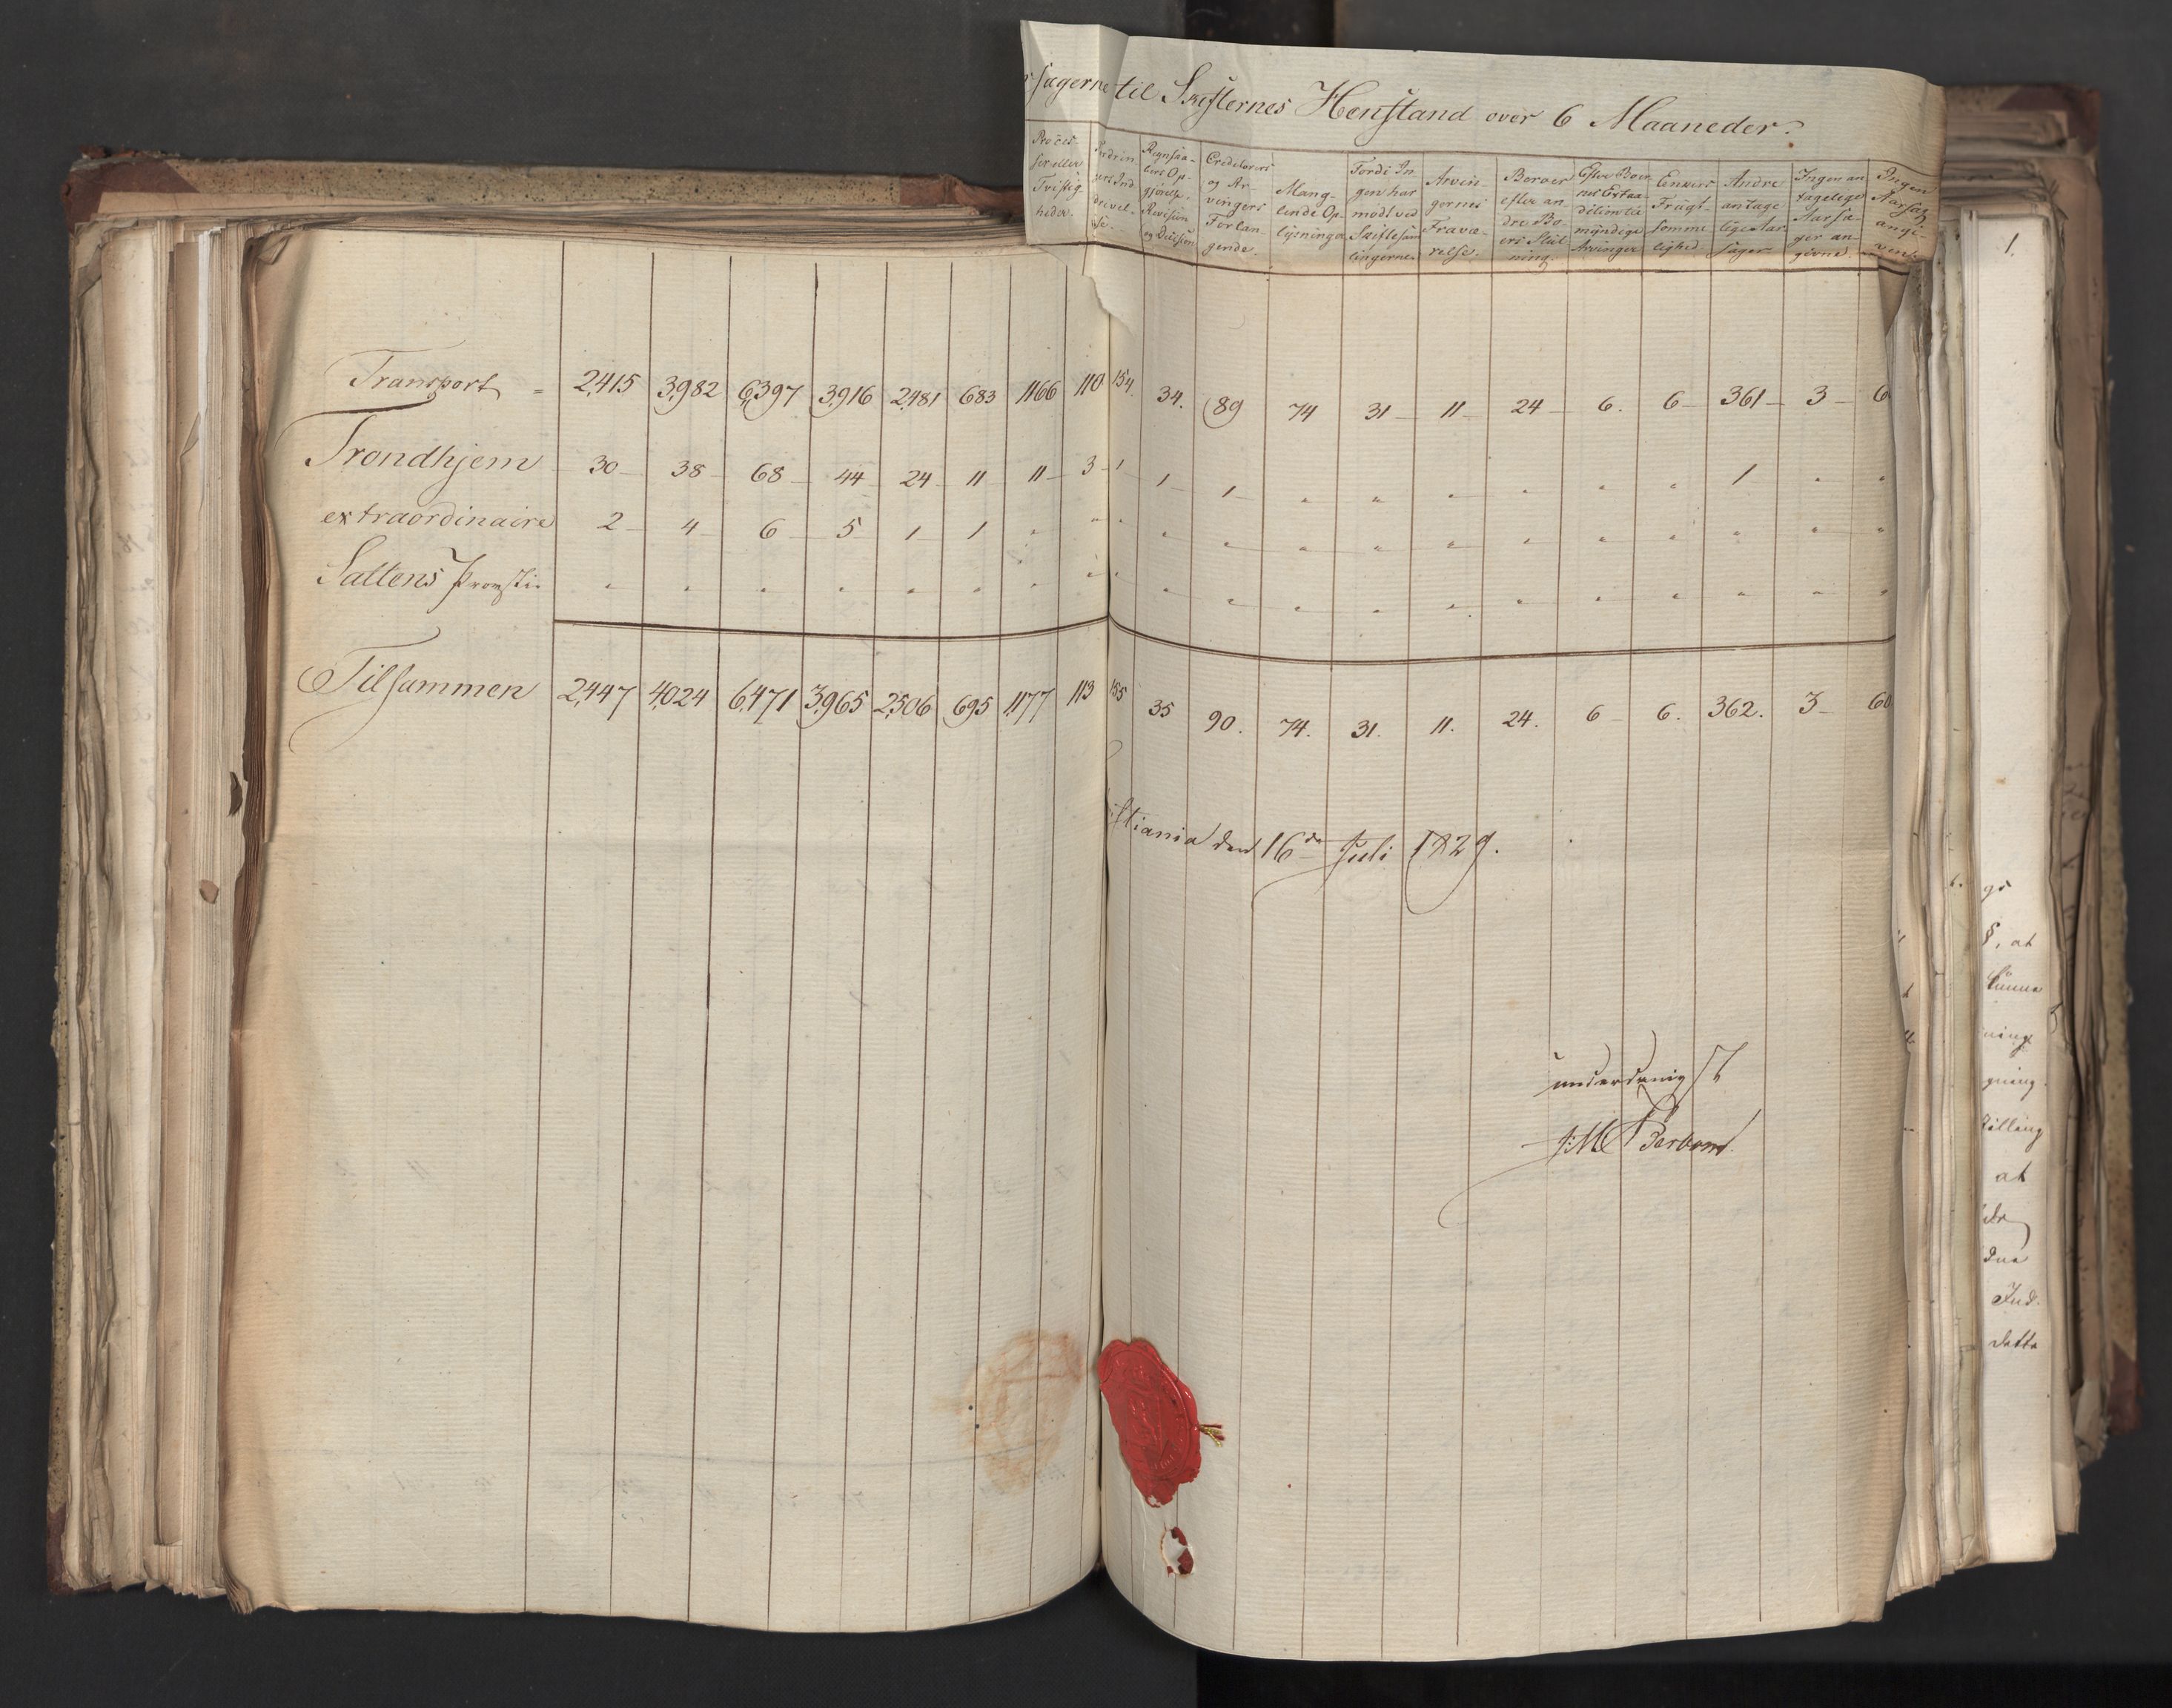 sagerne til Skifternes Henstand over 6 Maaneder.
Proces-
ser eller
Tvistig
heder.
Regnska-
bers Op-
gjørelse,
Revision
og Decision
Creditorers
og Ar
vingers
Forlan-
gende.
Mang-
lende Op-
lysninger
Fordi In-
gen har
mødt ved
Skiftesam
lingerne.
Arvin-
gernes
Fravæ-
relse.
Beroer
efter an-
dre Bo-
ers Slut-
ning.
Efter Boer
nes Extra
dition til
myndige
Arvinger
Enkers
Frugt-
somme
lighed.
Andre
antage
lige Aar
sager
Ingen an
tagelige
Aarsa-
ger an-
givne.
Ingen
Aarsag
angi-
ven.
Transport = 2,415 3,982 6,397 3,916 2,481 683 1166 110 154. 34. 89 74 31 11 24 6. 6 361 3 6
Trondhjem 30 38 68 44 24 11 11 3 1 1 1 " " " " " " 1 " "
extraordinaire 2 4 6 5 1 1 " " " " " " " " " " " " " "
Saltens Provsti " " " " " " " " " " " " " " " " " " " "
Tilsammen 2,447 4,024 6,471 3,965 2,506 695 1,177 113 155 35 90. 74. 31. 11. 24. 6 6. 362. 3 60
stiania den 16de Juli 1829.
underdanigst
1.
gs
§, at
kunne
ning
gning.
at
dne
Ind.
dette